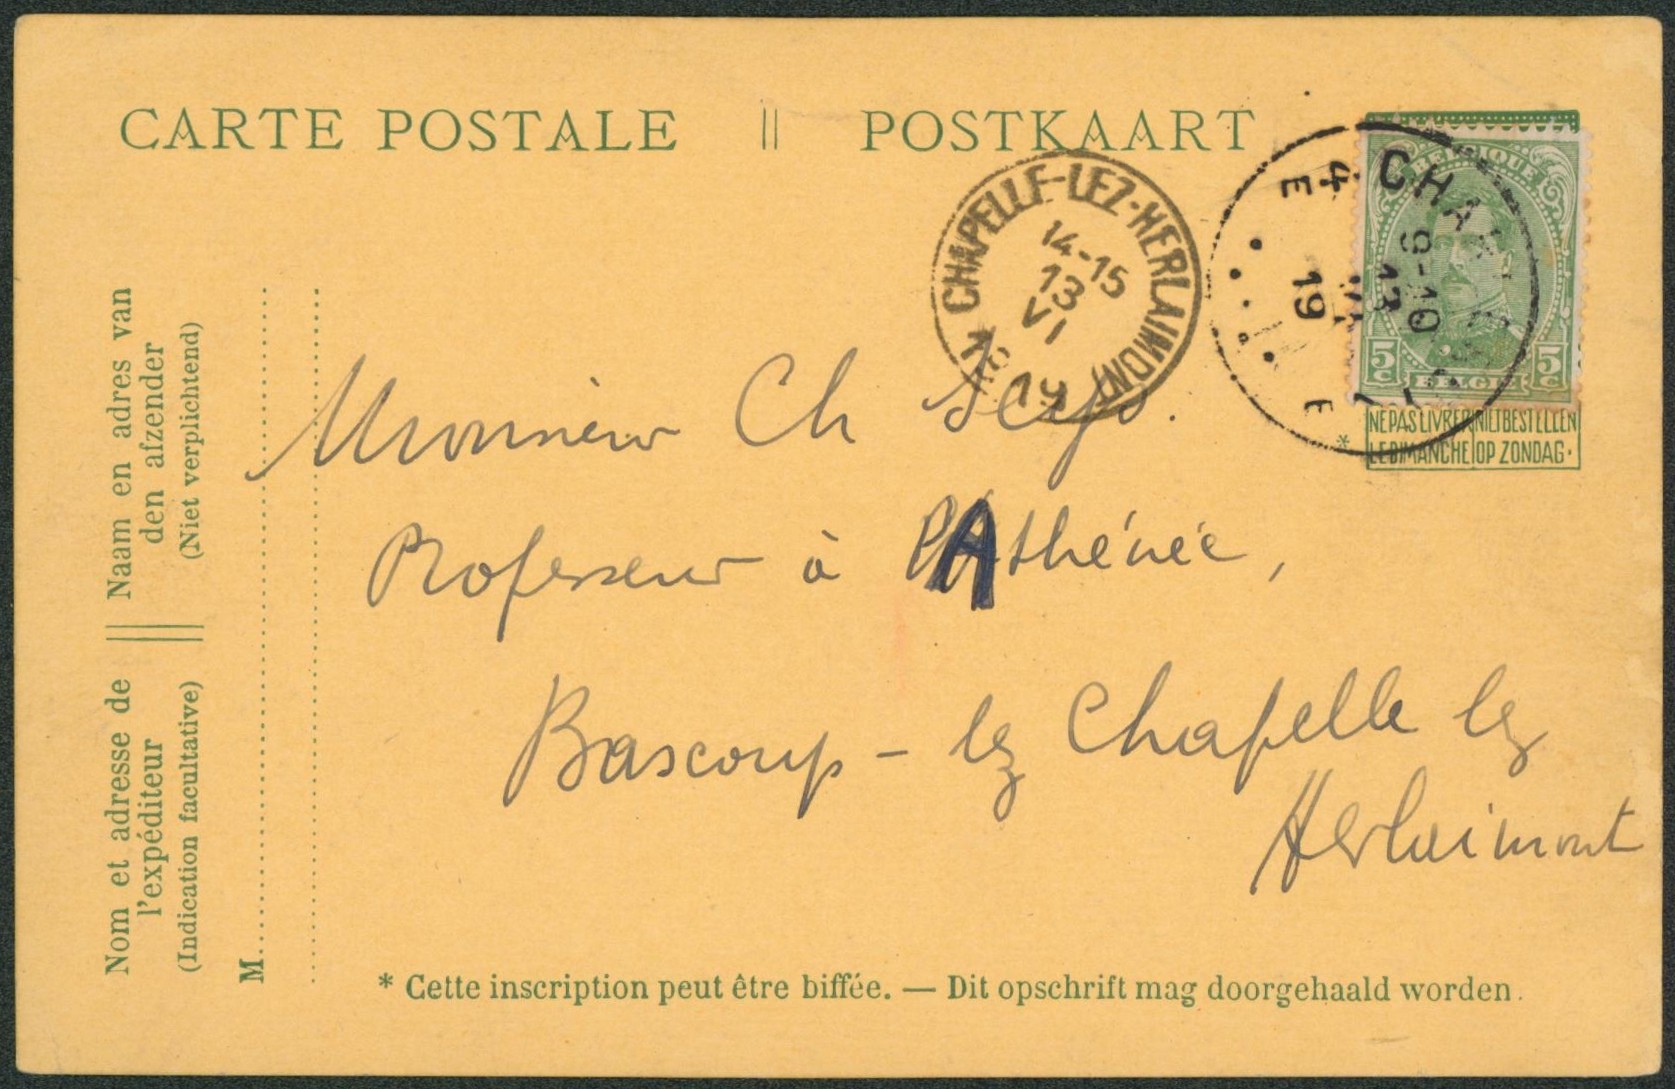 CARTE POSTALE || POSTKAART
BELGIQUE
5c 5c
BELGIË
NE PAS LIVRER NIET BESTELLEN
LE DIMANCHE OP ZONDAG.
*
CHAPELLE-LEZ-HERLAIMONT
14-15
13
VI
19
4 CHA
E E
9-10
13
VI
19
Monsieur Ch
Professeur à l'Athénée,
A
Bascoup - lez Chapelle lez
Herlaimont
Naam en adres van
den afzender
(Niet verplichtend)
Nom et adresse de
l'expéditeur
(Indication facultative)
M
* Cette inscription peut être biffée. — Dit opschrift mag doorgehaald worden.